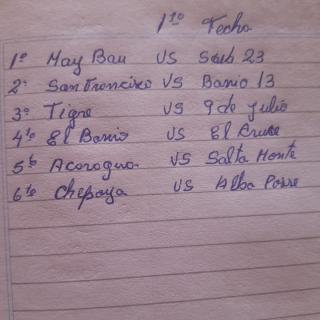 11º Fecha
1º May Bau VS Sub 23
2º San Francisco VS Barrio 13
3º Tigre VS 9 de Julio
4to El Barrio VS El Cruce
5to Acaragua VS Salta Monte
6to Chepaya VS Alba Posse